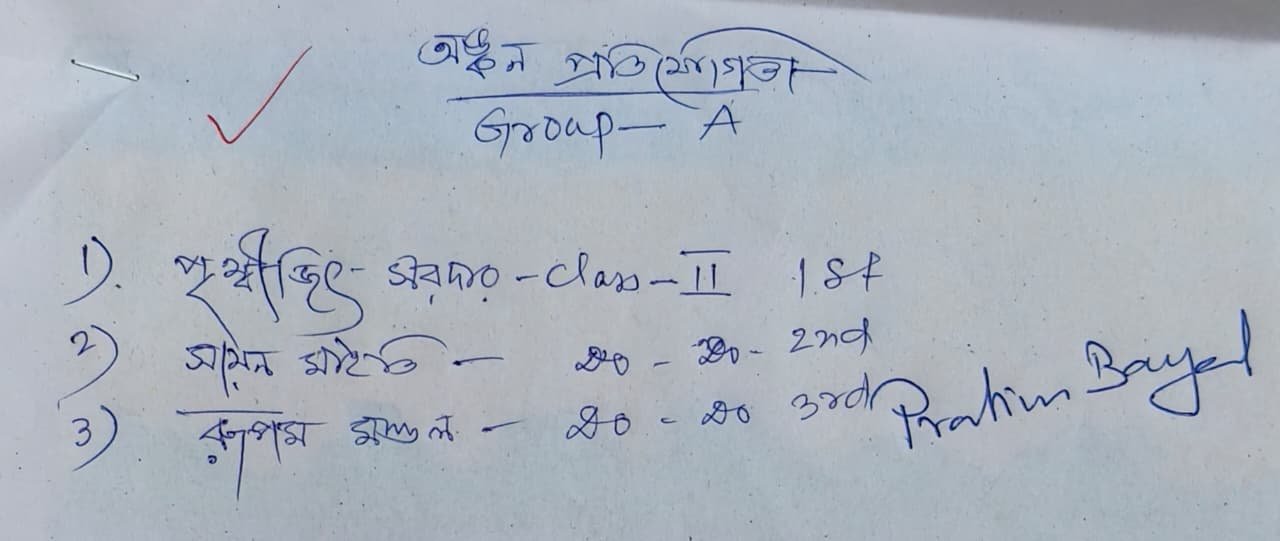 অঙ্কন প্রতিযোগিতা
Group - A
1). পৃথ্বীজিৎ সরদার - Class - II 1st
2) সায়ন মাইতি - Do - Do - 2nd
3) রূপম মণ্ডল - Do - Do 3rd
Pratim Bayal